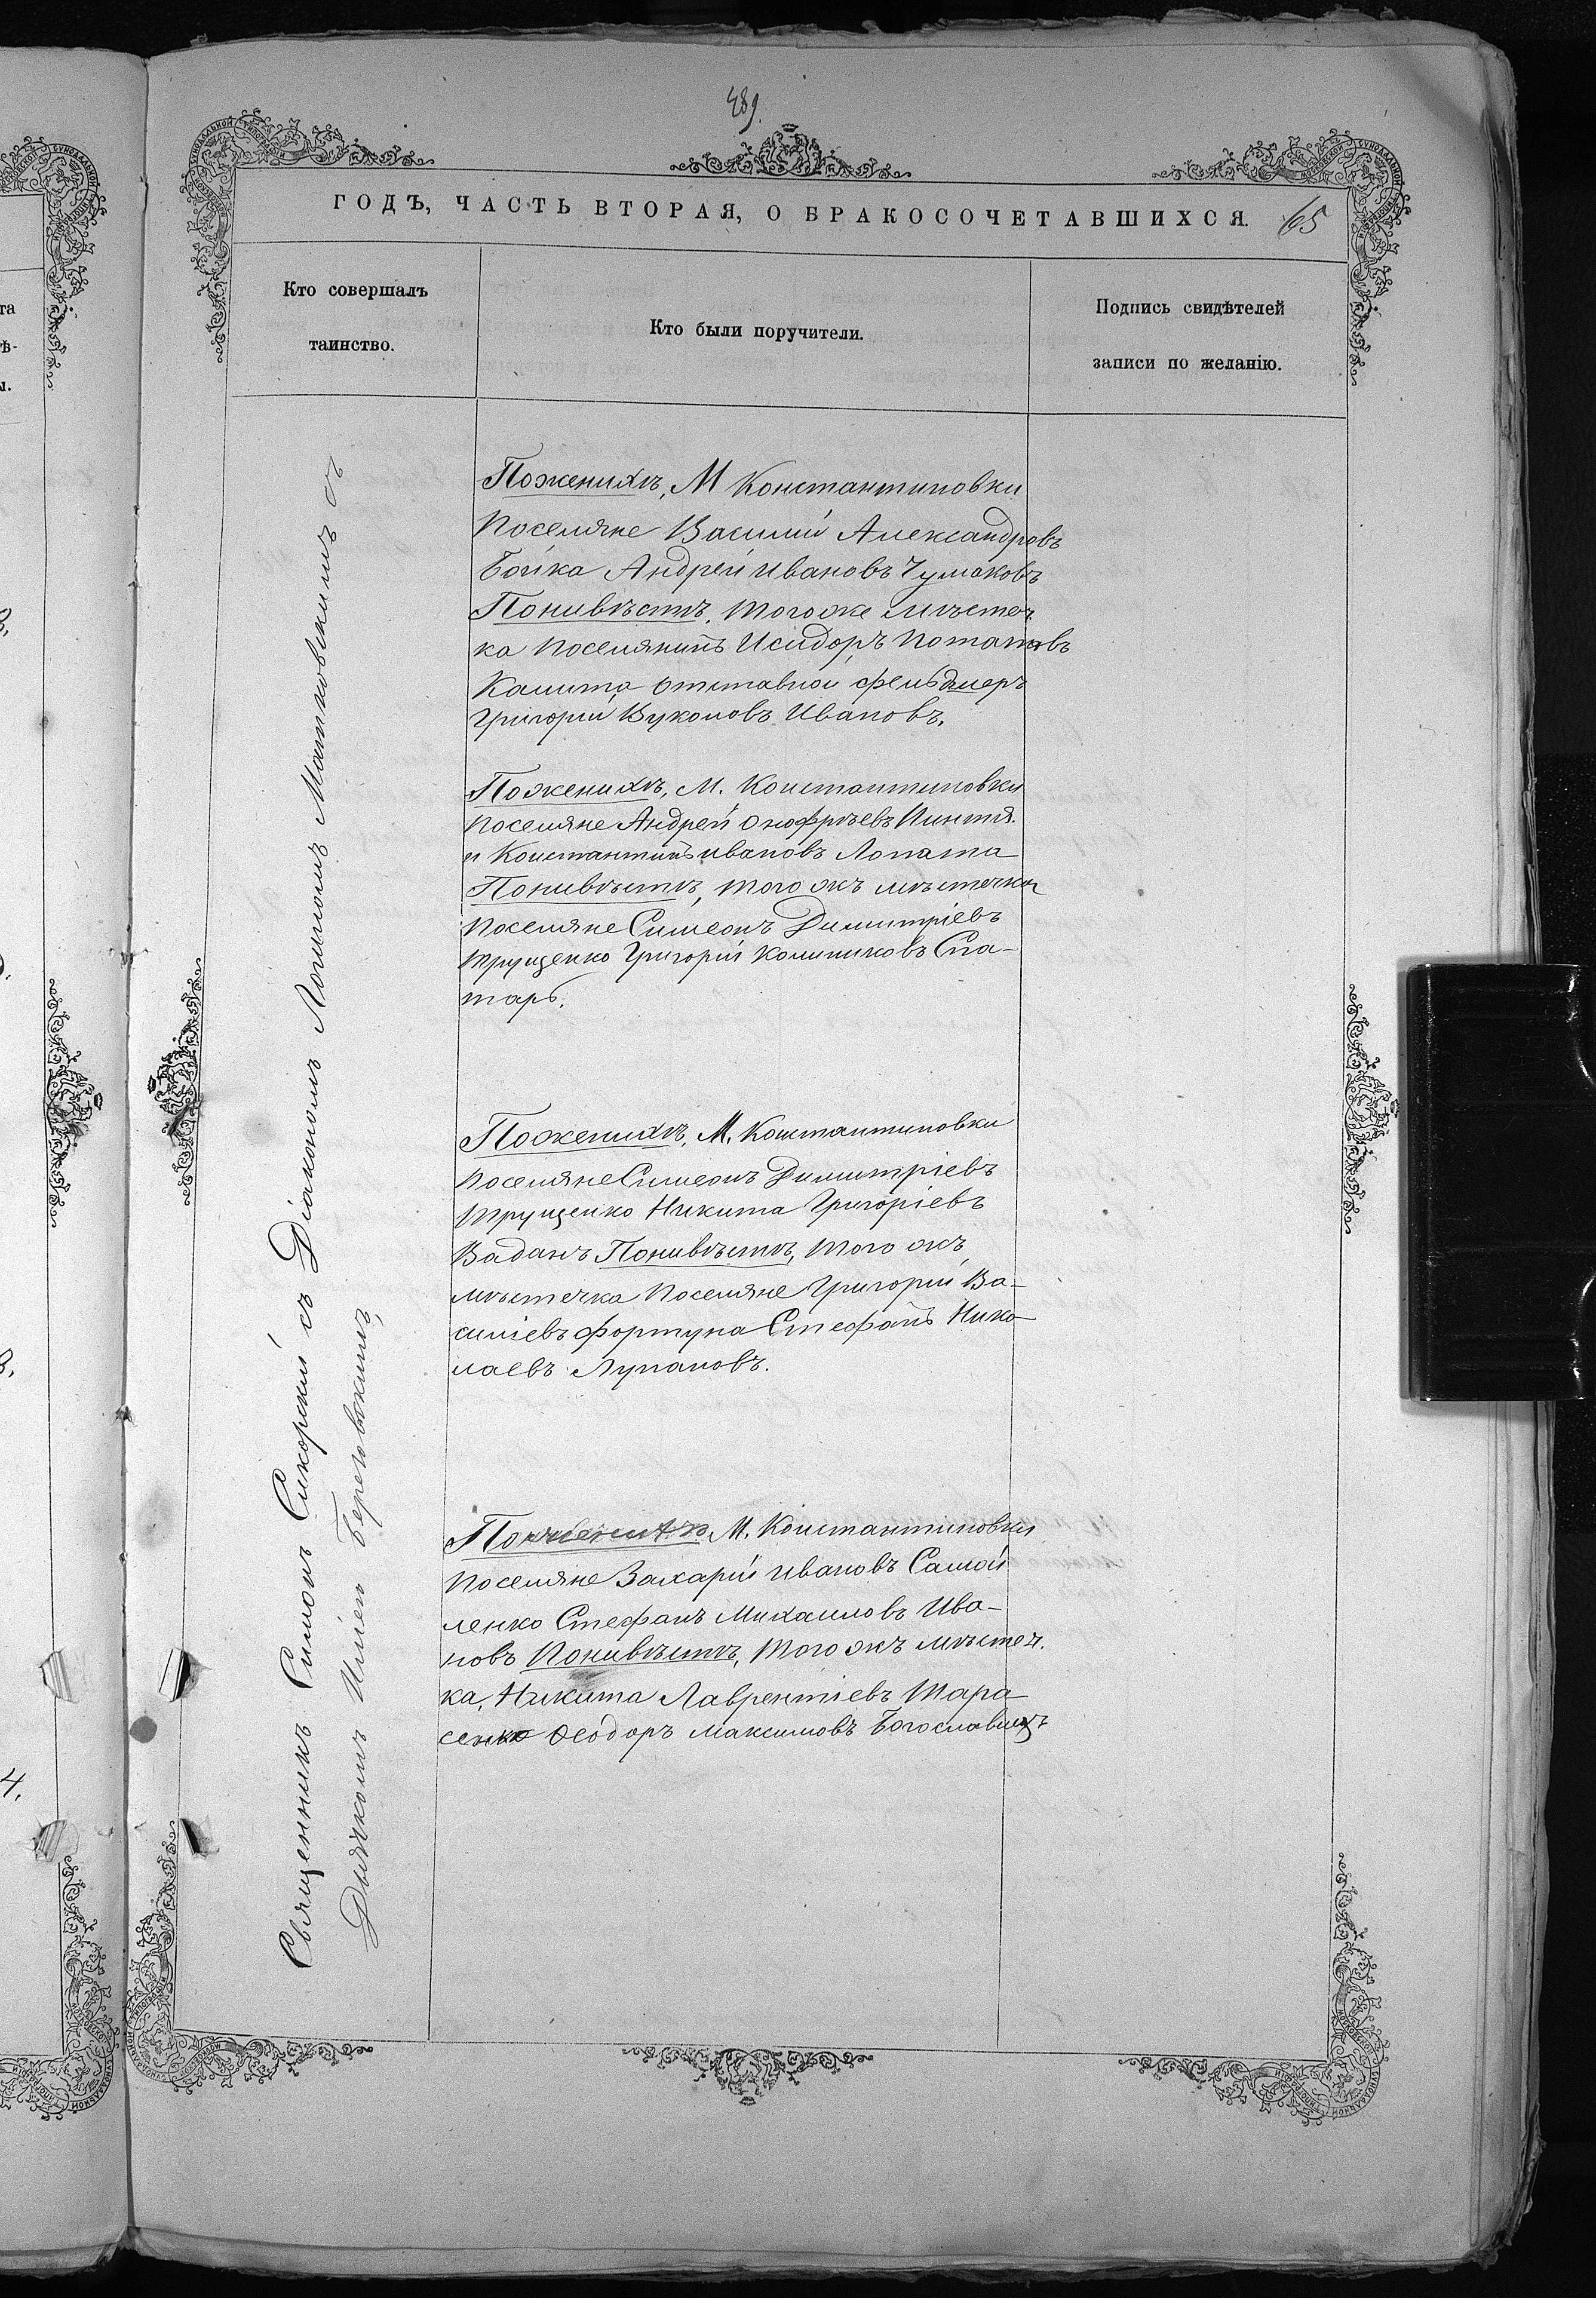 489.
ГОДЪ, ЧАСТЬ ВТОРАЯ, О БРАКОСОЧЕТАВШИХСЯ. 65
Кто совершалъ
таинство.
Кто были поручители.
Подпись свидѣтелей
записи по желанію.
Священникъ Симонъ Сикорскій съ Діакономъ Логиномъ Матковскимъ съ
Дьячкомъ Иліею Береговскимъ
Поженихѣ, М Константиновки
Поселяне Василій Александровъ
Бойка Андрей Ивановъ Чумаковъ
Поневѣстѣ, того же мѣстеч
ка поселянинъ Исидоръ Потаповъ
Калита отставной фельдшеръ
Григорій Вуколовъ Ивановъ.
Поженихѣ, М. Константиновки
поселяне Андрей Онофріевъ Пинтя.
и Константинъ Ивановъ Лопата
Поневѣстѣ, того жъ мѣстечка
поселяне Симеонъ Димитріевъ
Трущенко Григорій Калиниковъ Спа-
тарь.
Поженихѣ, М. Константиновки
поселяне Симеонъ Димитріевъ
Трущенко Никита Григоріевъ
Ваданъ Поневѣстѣ, того жъ
мѣстечка поселяне Григорій Ва-
силіевъ Фортуна Стефанъ Нико
лаевъ Лупановъ.
Поженихѣ М. Константиновки
поселяне Захарій Ивановъ Самой
ленко Стефанъ Михаиловъ Ива-
новъ Поневѣстѣ, того жъ мѣстеч.
ка, Никита Лаврентіевъ Тара
сенко Ѳеодоръ Максимовъ
та
ѣ-
ы.
4.